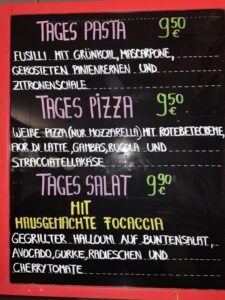 TAGES PASTA 950 €
FUSILLI MIT GRÜNKOHL, MASCARPONE,
GERÖSTETEN PINIENKERNEN UND
ZITRONENSCHALE.
TAGES PIZZA 950 €
WEIßE PIZZA (NUR MOZZARELLA), MIT ROTEBETECREME,
FIOR DI LATTE, GAMBAS, RUGOLA UND
STRACCIATELLAKÄSE.
TAGES SALAT 990 €
MIT
HAUSGEMACHTE FOCACCIA
GEGRILLTER HALLOUMI AUF BUNTENSALAT,
AVOCADO, GURKE, RADIESCHEN UND
CHERRYTOMATE